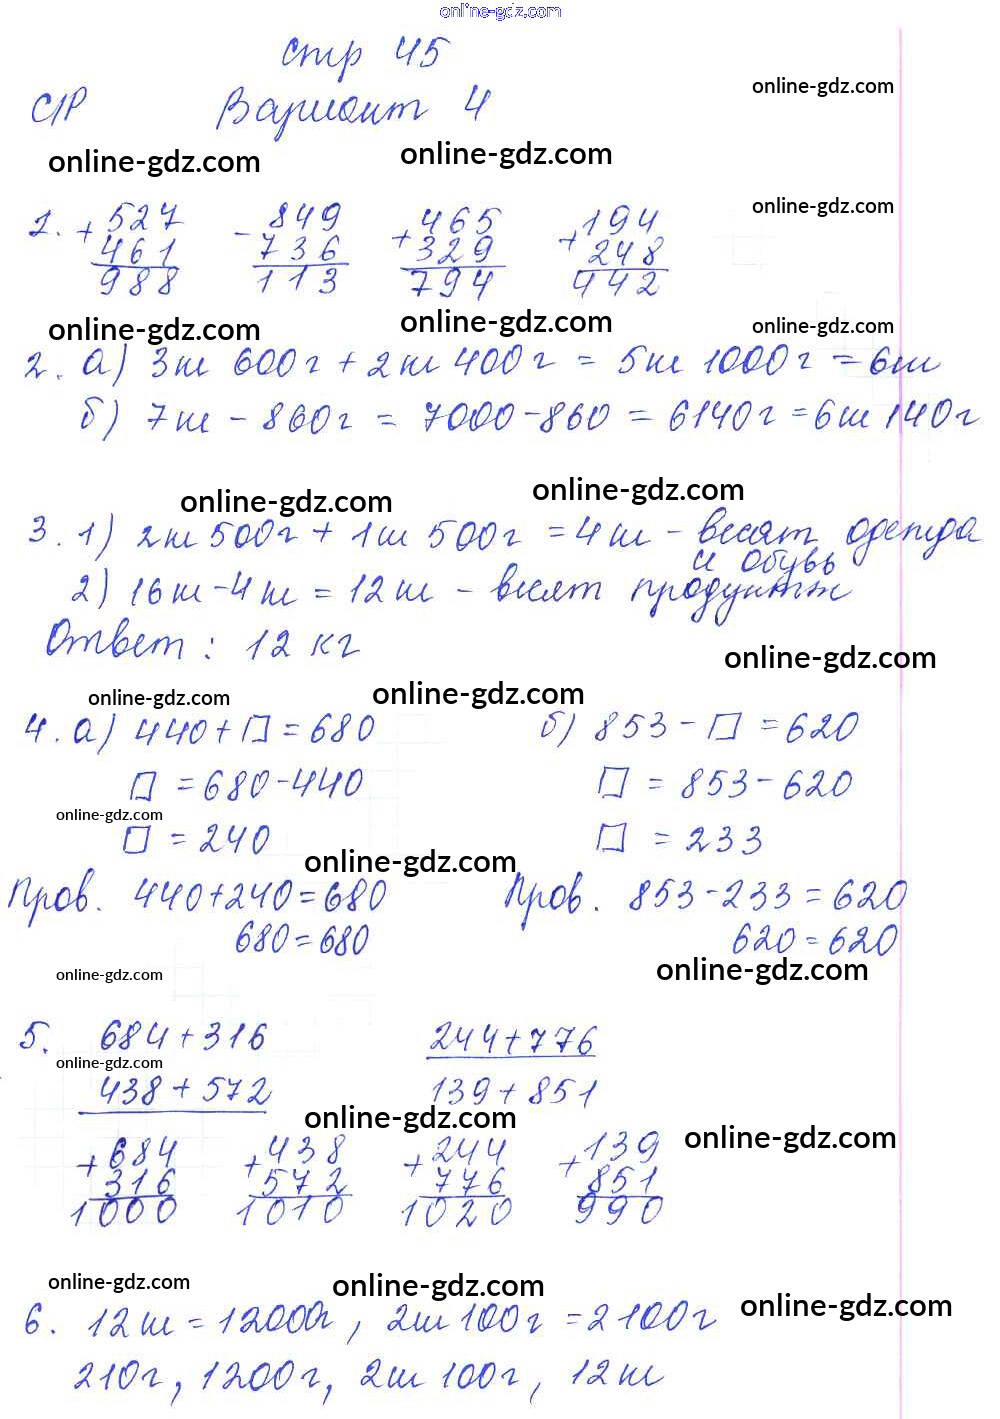 online-gdz.com
стр 45
online-gdz.com
С/Р Вариант 4
online-gdz.com online-gdz.com
online-gdz.com
1. +527 -849 +465 +194
461 736 329 248
988 113 794 442
online-gdz.com online-gdz.com online-gdz.com
2. а) 3кг 600г + 2кг 400г = 5кг 1000г = 6кг
б) 7кг - 860г = 7000-860 = 6140г = 6кг 140г
online-gdz.com online-gdz.com
3. 1) 2кг 500г + 1кг 500г = 4кг - весят одежда
и обувь
2) 16кг-4кг = 12кг - весят продукты
Ответ: 12 кг
online-gdz.com
online-gdz.com online-gdz.com
4. а) 440+□=680 б) 853-□=620
□=680-440 □ = 853-620
online-gdz.com
□ = 240 □ = 233
online-gdz.com
Пров. 440+240=680 Пров. 853-233=620
680=680 620=620
online-gdz.com online-gdz.com
5. 684+316 244+776
online-gdz.com
438+572 139+851
online-gdz.com online-gdz.com
+684 +438 +244 +139
316 572 776 851
1000 1010 1020 990
online-gdz.com online-gdz.com online-gdz.com
6. 12кг=12000г, 2кг 100г =2100г
210г, 1200г, 2кг 100г, 12кг